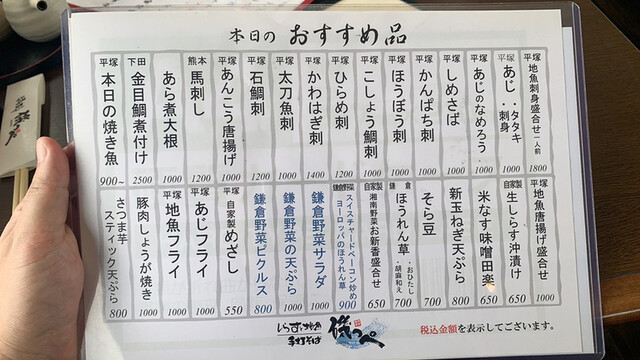 本日の おすすめ品
平塚 地魚刺身盛合せ 一人前 1800
平塚 あじ ・タタキ ・刺身 1000
平塚 あじのなめろう 1000
平塚 しめさば 1000
平塚 かんぱち刺 1000
平塚 ほうぼう刺 1000
平塚 こしょう鯛刺 1000
平塚 ひらめ刺 1200
平塚 かわはぎ刺 1400
平塚 太刀魚刺 1000
平塚 石鯛刺 1000
平塚 あんこう唐揚げ 1000
熊本 馬刺し 1200
あら煮大根 1000
下田 金目鯛煮付け 2500
平塚 本日の焼き魚 900~
平塚 地魚唐揚げ盛合せ 1000
自家製 生しらす沖漬け 650
米なす味噌田楽 650
新玉ねぎ天ぷら 800
そら豆 700
鎌倉 ほうれん草 ・おひたし ・胡麻和え 700
自家製 湘南野菜お新香盛合せ 650
鎌倉野菜 スイスチャードベーコン炒め ヨーロッパのほうれん草 900
鎌倉野菜サラダ 1000
鎌倉野菜の天ぷら 1000
鎌倉野菜ピクルス 800
平塚 自家製 めざし 550
平塚 あじフライ 1000
平塚 地魚フライ 1000
豚肉しょうが焼き 1000
さつま芋スティック天ぷら 800
税込金額を表示してございます。